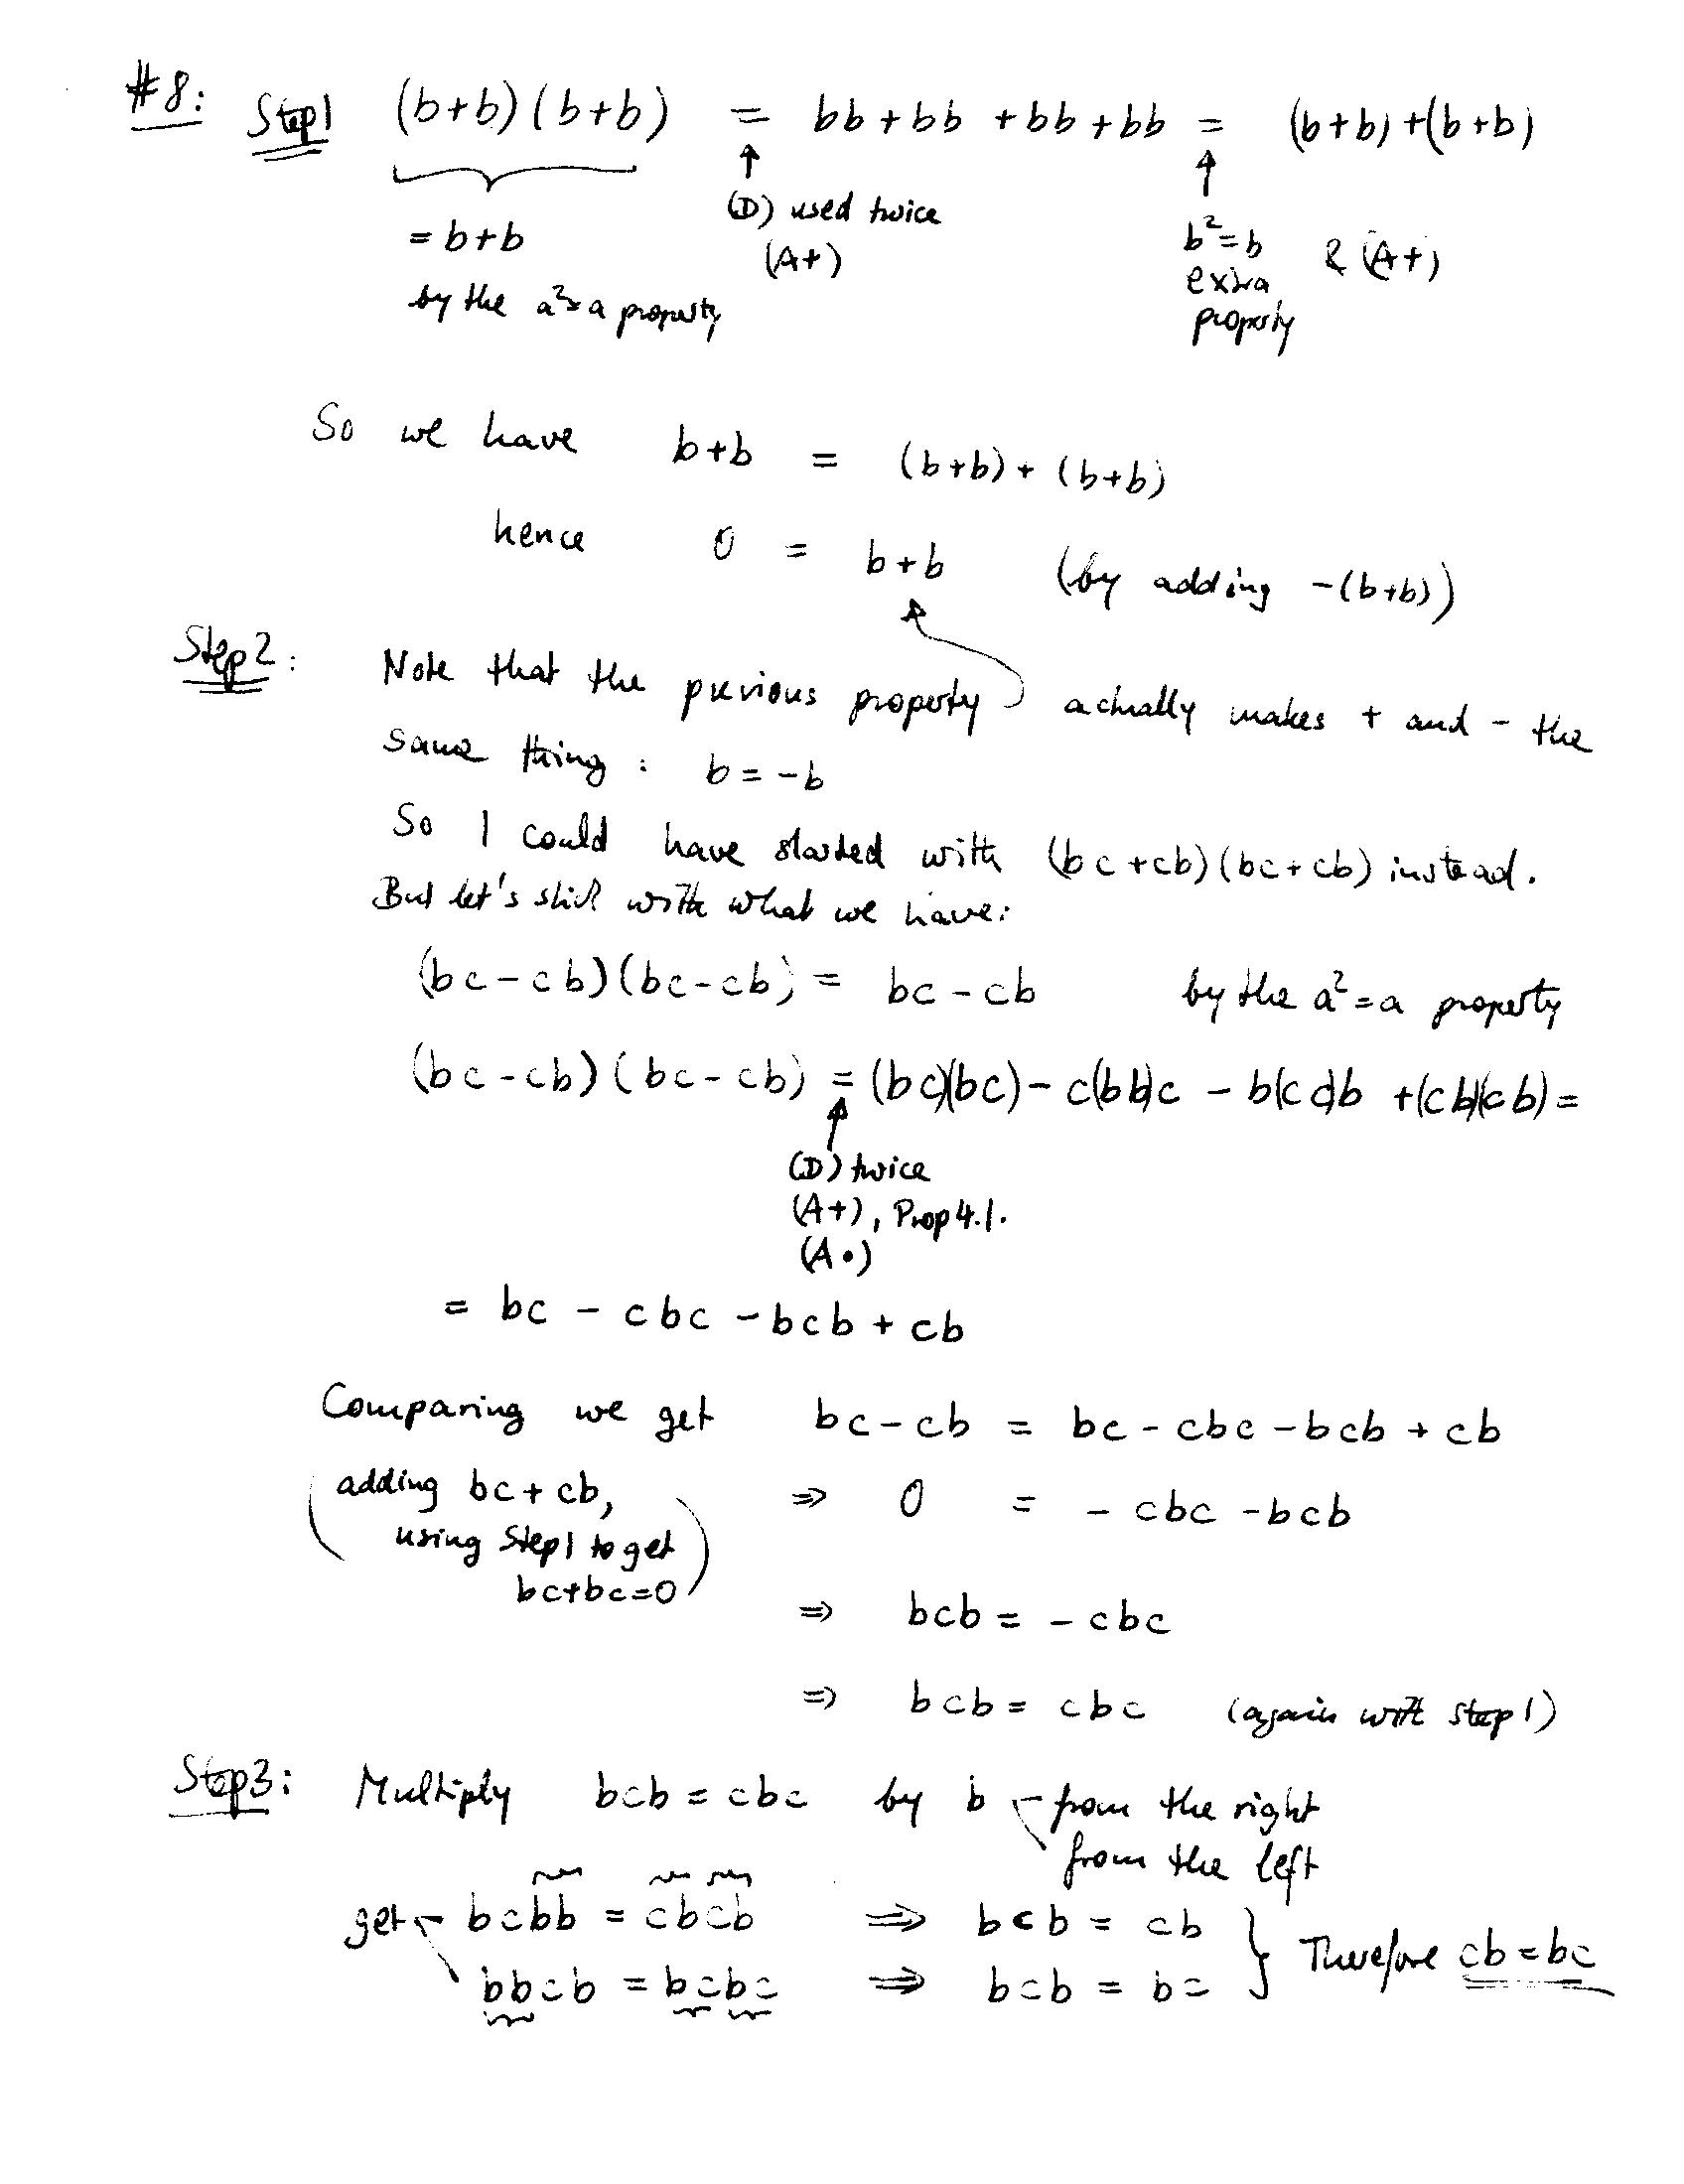 #8: Step1 (b+b)(b+b) = bb+bb+bb+bb = (b+b)+(b+b)
= b+b
by the a²=a property
(D) used twice
(A+)
b²=b & (A+)
extra
property
So we have b+b = (b+b)+(b+b)
hence 0 = b+b (by adding -(b+b))
Step2: Note that the previous property actually makes + and - the
same thing: b=-b
So I could have started with (bc+cb)(bc+cb) instead.
But let's stick with what we have:
(bc-cb)(bc-cb) = bc-cb by the a²=a property
(bc-cb)(bc-cb) = (bc)(bc) - c(bb)c - b(cc)b + (cb)(cb) =
(D) twice
(A+), Prop 4.1.
(A•)
= bc - cbc - bcb + cb
Comparing we get bc-cb = bc-cbc-bcb+cb
(adding bc+cb, ⇒ 0 = -cbc-bcb
using Step1 to get
bc+bc=0)
⇒ bcb = -cbc
⇒ bcb = cbc (again with step1)
Step3: Multiply bcb = cbc by b from the right
from the left
get bcbb = cbcb ⇒ bcb = cb
bbcb = bcbc ⇒ bcb = bc } Therefore cb=bc